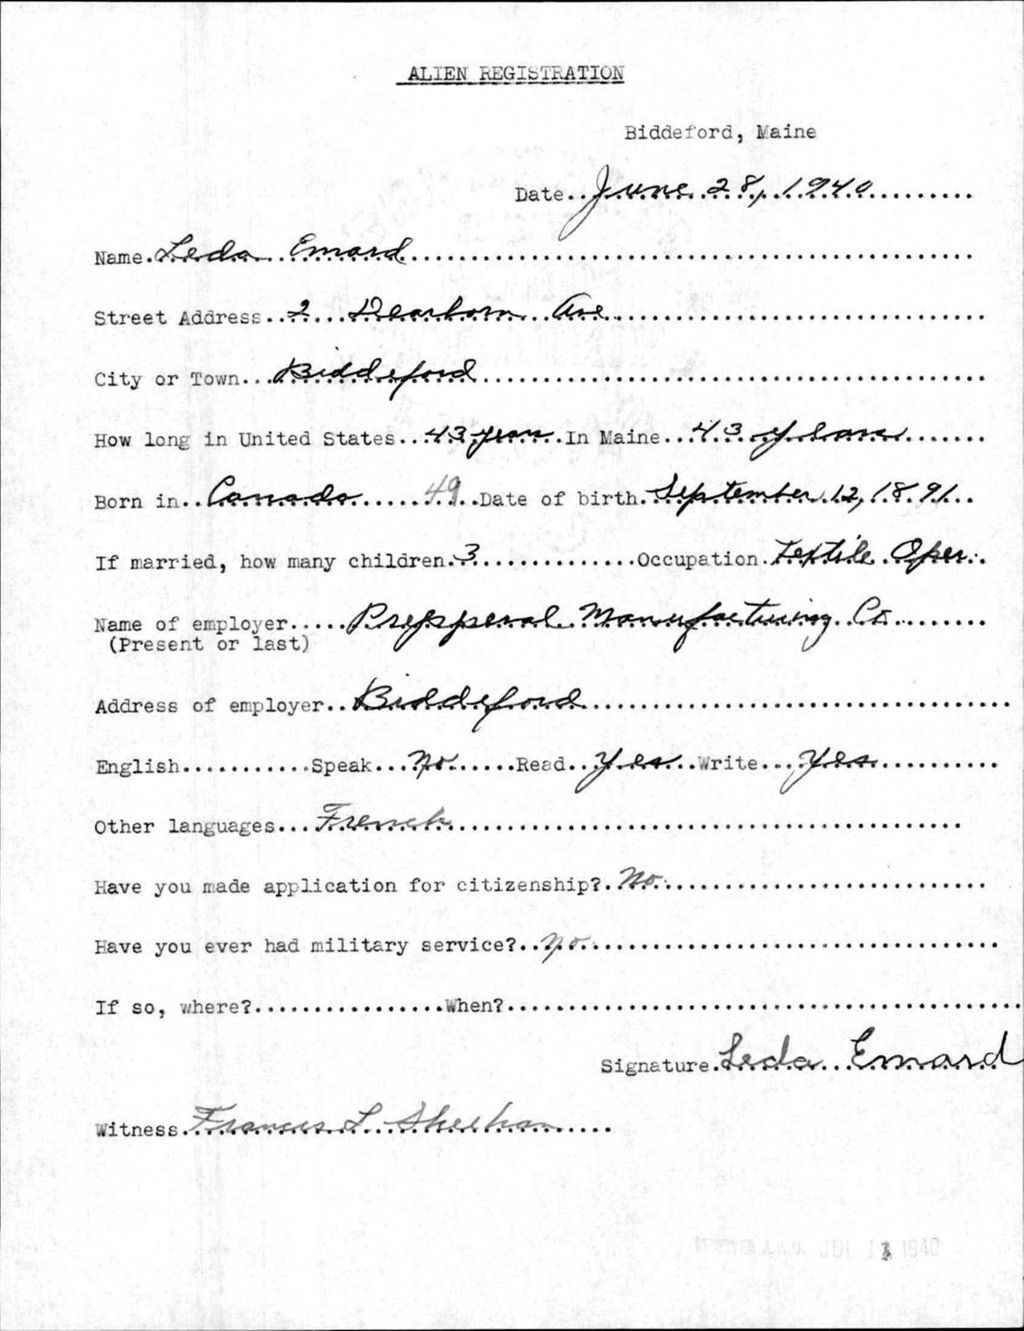 ALIEN REGISTRATION
Biddeford, Maine
Date..June 28, 1940
Name.Leda Emard
Street Address..2 Dearborn Ave
City or Town...Biddeford
How long in United States..43 years.In Maine...43 years
Born in..Canada 49..Date of birth.September 12, 1891..
If married, how many children.3..............Occupation.Textile Oper.
Name of employer.....Pepperal Manufacturing Co.
(Present or last)
Address of employer..Biddeford
English...........Speak...No......Read..Yes..Write...Yes
Other languages...French
Have you made application for citizenship?.No.
Have you ever had military service?..No
If so, where?.................When?
Signature.Leda Emard
Witness.Francis L. Sheehan
RECEIVED A.G.O. JUL 1940